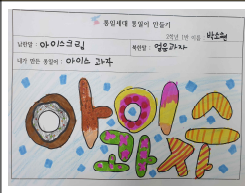 통일세대 통일이 만들기
2학년 1반 이름 박소현
남한말 : 아이스크림
북한말 : 얼음과자
내가 만든 통일어 : 아이스 과자
아이스
과자